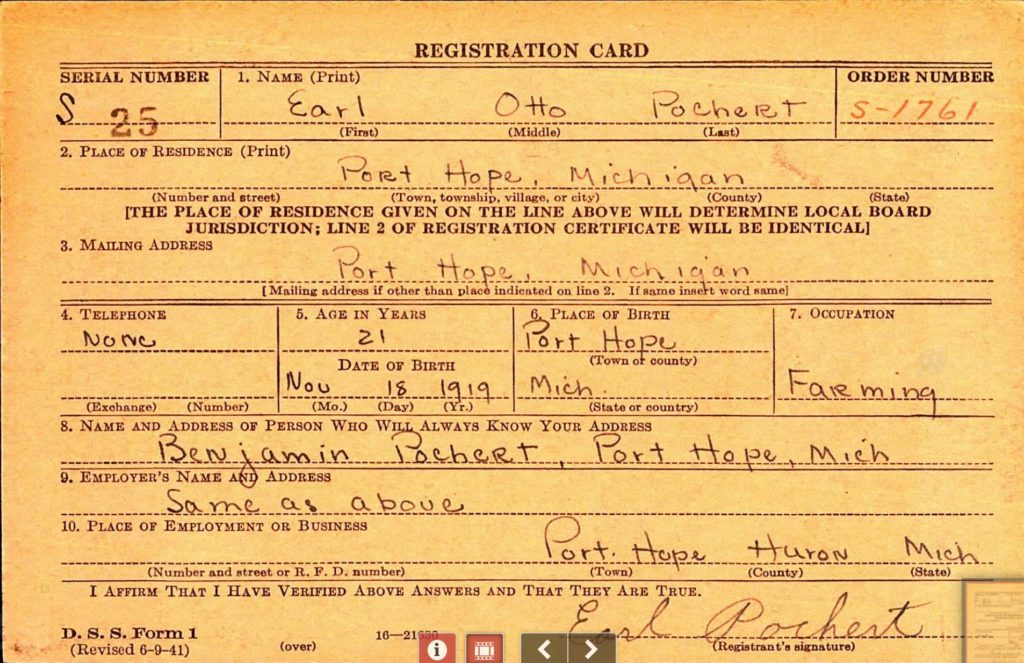 REGISTRATION CARD
SERIAL NUMBER 1. NAME (Print) ORDER NUMBER
S 25 Earl Otto Pochert S-1761
(First) (Middle) (Last)
2. PLACE OF RESIDENCE (Print)
Port Hope, Michigan
(Number and street) (Town, township, village, or city) (County) (State)
[THE PLACE OF RESIDENCE GIVEN ON THE LINE ABOVE WILL DETERMINE LOCAL BOARD
JURISDICTION; LINE 2 OF REGISTRATION CERTIFICATE WILL BE IDENTICAL]
3. MAILING ADDRESS
Port Hope, Michigan
[Mailing address if other than place indicated on line 2. If same insert word same]
4. TELEPHONE 5. AGE IN YEARS 6. PLACE OF BIRTH 7. OCCUPATION
None 21 Port Hope
DATE OF BIRTH (Town or county)
Nov 18 1919 Mich. Farming
(Exchange) (Number) (Mo.) (Day) (Yr.) (State or country)
8. NAME AND ADDRESS OF PERSON WHO WILL ALWAYS KNOW YOUR ADDRESS
Benjamin Pochert, Port Hope, Mich
9. EMPLOYER'S NAME AND ADDRESS
Same as above
10. PLACE OF EMPLOYMENT OR BUSINESS
Port. Hope Huron Mich
(Number and street or R. F. D. number) (Town) (County) (State)
I AFFIRM THAT I HAVE VERIFIED ABOVE ANSWERS AND THAT THEY ARE TRUE.
Earl Pochert
D. S. S. Form 1
(Revised 6-9-41) (over) (Registrant's signature)